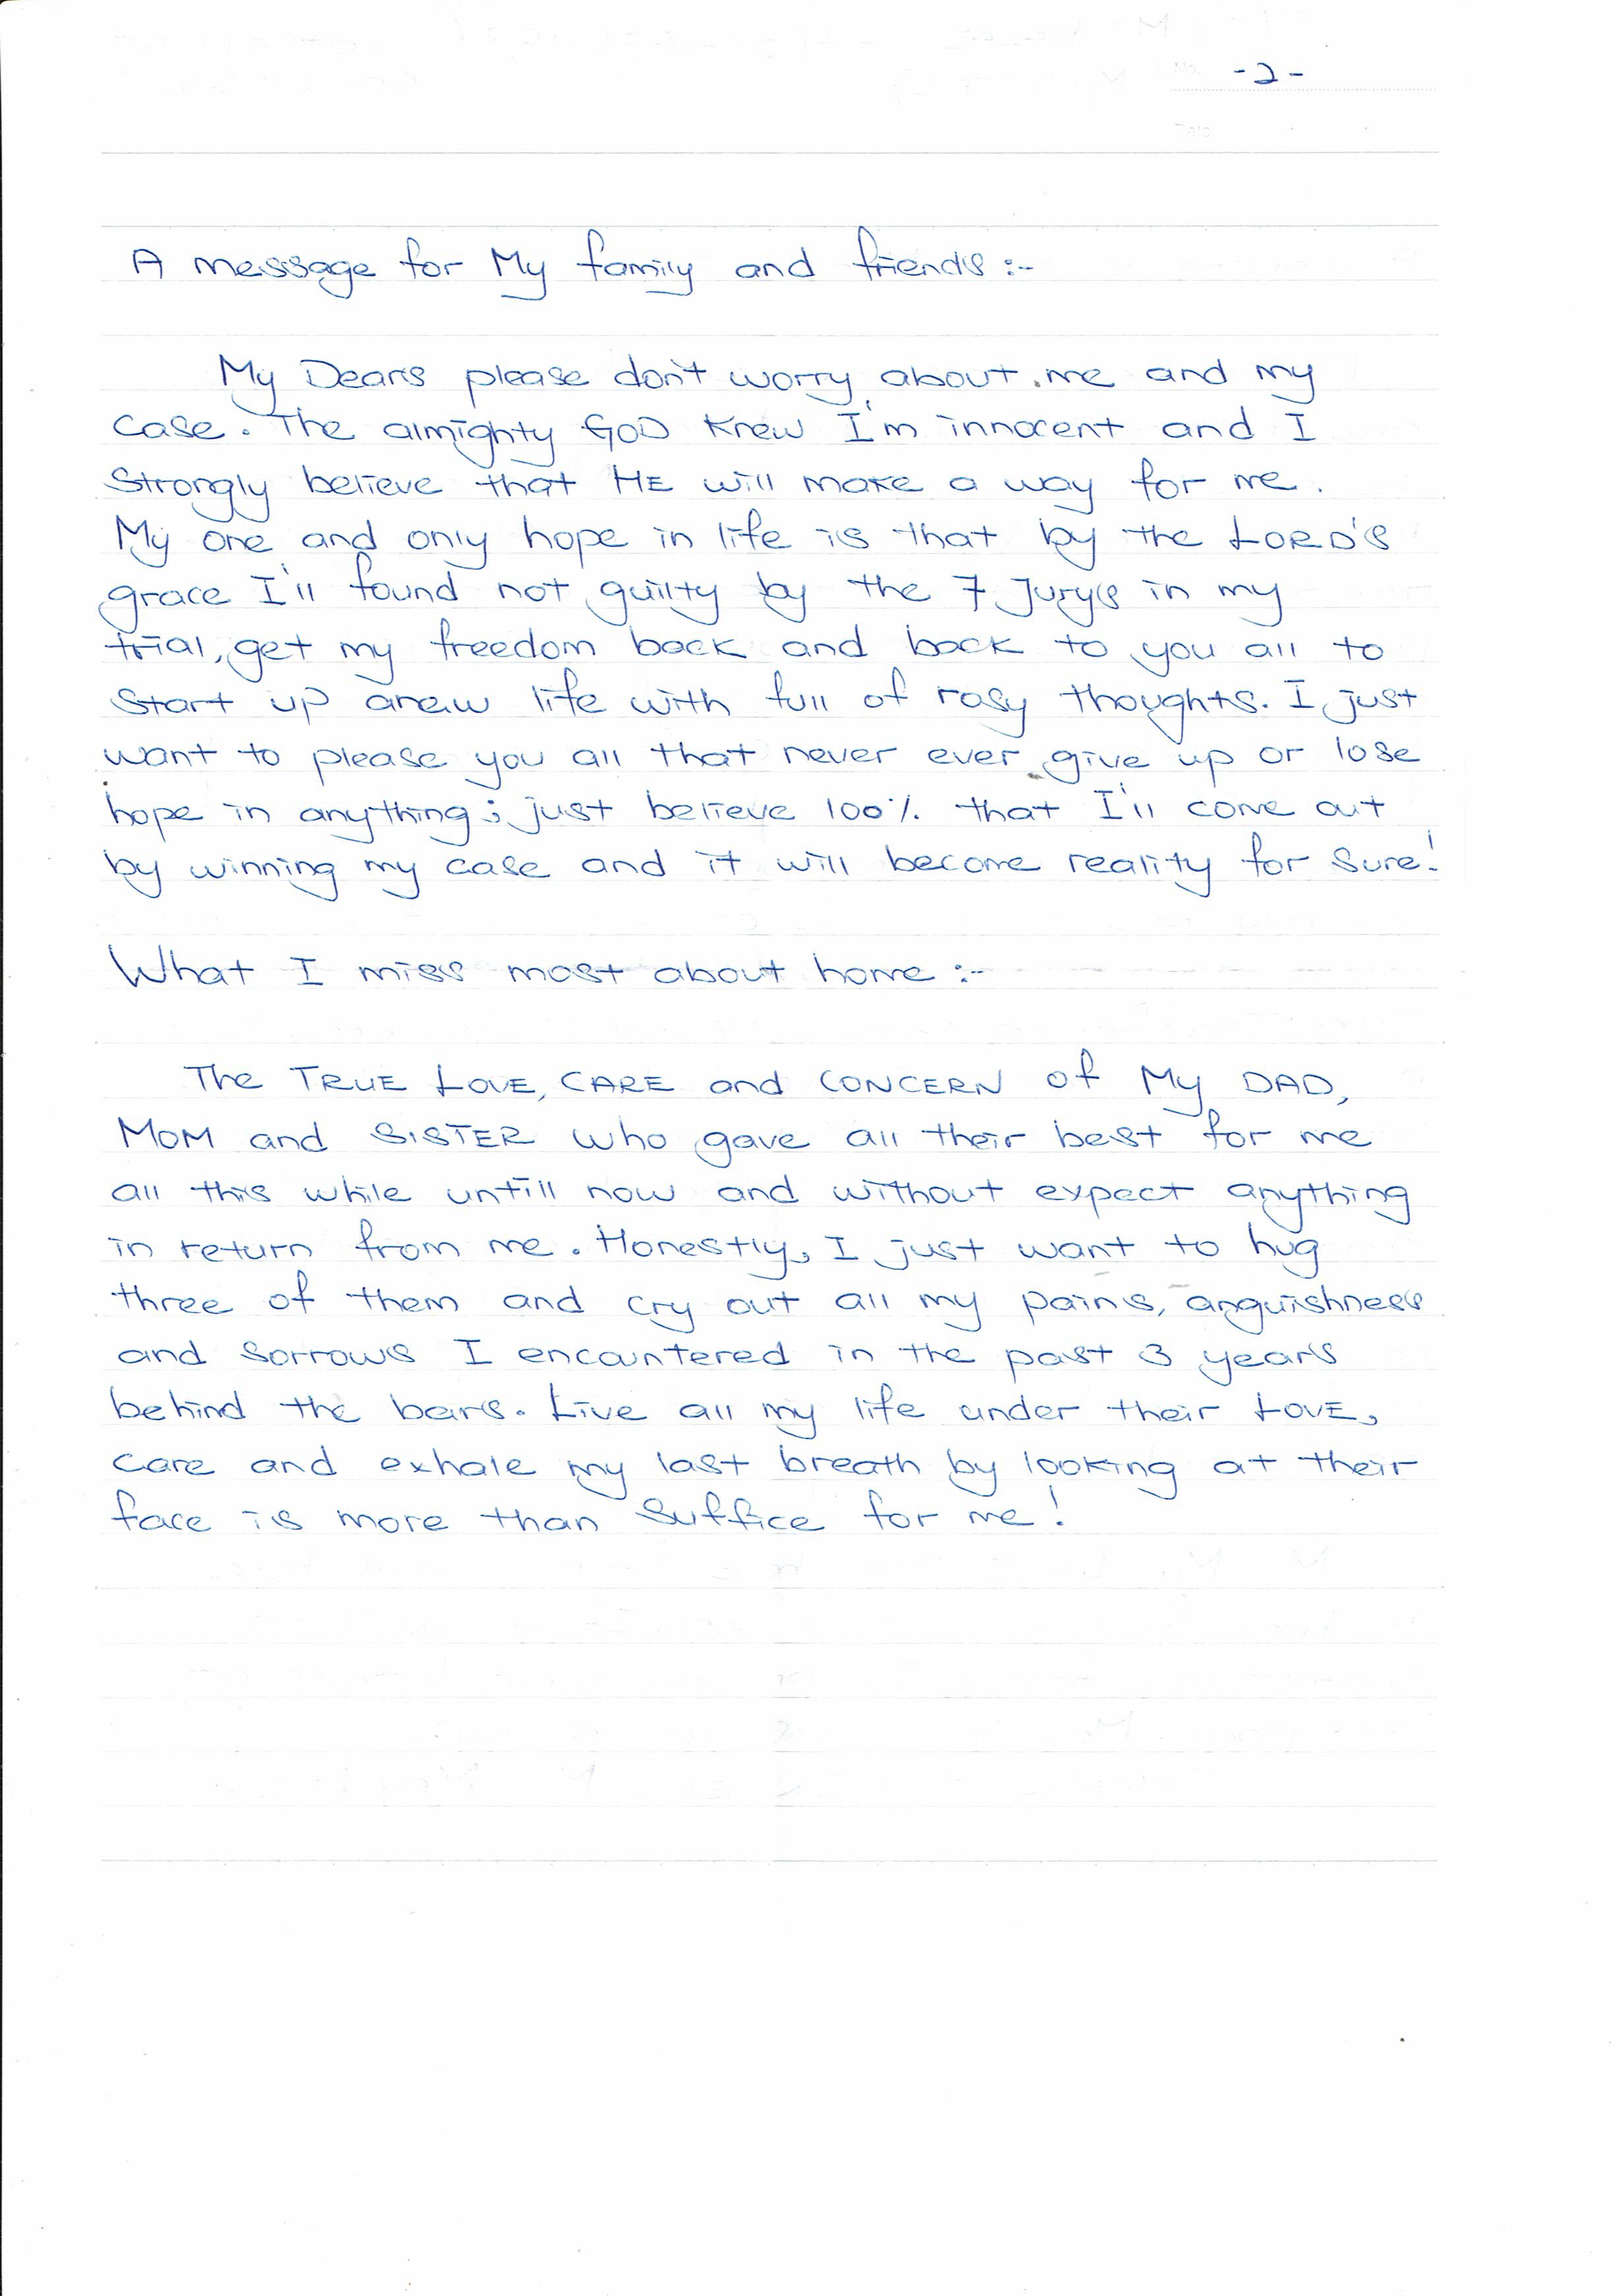 -2-
A message for My family and friends :-
My Dears please don't worry about me and my
case. The almighty GOD knew I'm innocent and I
strongly believe that HE will make a way for me.
My one and only hope in life is that by the LORD'S
grace I'll found not guilty by the 7 Jurys in my
trial, get my freedom back and back to you all to
start up anew life with full of rosy thoughts. I just
want to please you all that never ever give up or lose
hope in anything; just believe 100% that I'll come out
by winning my case and it will become reality for sure!
What I miss most about home :-
The TRUE LOVE, CARE and CONCERN of My DAD,
MOM and SISTER who gave all their best for me
all this while untill now and without expect anything
in return from me. Honestly, I just want to hug
three of them and cry out all my pains, anguishness
and sorrows I encountered in the past 3 years
behind the bars. Live all my life under their LOVE,
care and exhale my last breath by looking at their
face is more than suffice for me!